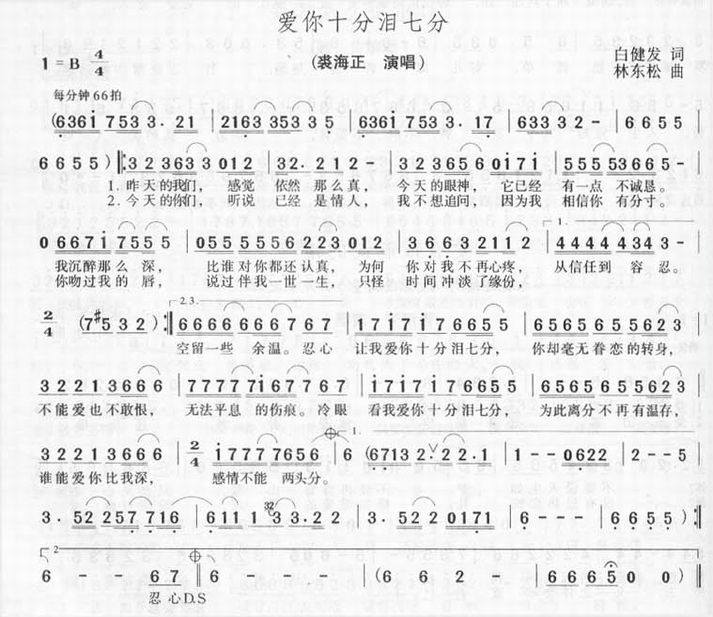 爱你十分泪七分
1=B 4/4
(裘海正 演唱)
白健发 词
林东松 曲
每分钟66拍
(636i 753 3. 21 | 2163 353 3 5 | 636i 753 3. 17 | 633 3 2 - | 6 6 5 5 |
6 6 5 5) ‖: 3 2 3 63 3 0 1 2 | 3 2. 2 1 2 - | 3 2 3 65 6 0 i 7 i | 5 5 5 5 3 6 6 5 - |
1. 昨天的我们, 感觉 依然 那么真, 今天的眼神, 它已经 有一点 不诚恳。
2. 今天的你们, 听说 已经 是情人, 我不想追问, 因为我 相信你 有分寸。
0 6 6 7 i 7 5 5 5 | 0 5 5 5 5 5 6 2 2 3 0 1 2 | 3 6 6 3 2 1 1 2 | 4 4 4 4 4 3 4 3 - |
我沉醉那么 深, 比谁对你都还认真, 为何 你对我不再心疼, 从信任到 容忍。
你吻过我的 唇, 说过伴我一世一生, 只怪 时间冲淡了缘份,
2/4 (7 #5 3 2) :‖ 2.3. 6 6 6 6 6 6 6 7 6 7 | i 7 i 7 i 7 6 6 5 5 | 6 5 6 5 6 5 5 6 2 3 |
空留一些 余温。忍心 让我爱你十分泪七分, 你却毫无眷恋的转身,
3 2 2 1 3 6 6 6 | 7 7 7 7 7 i 6 7 7 6 7 | i 7 i 7 i 7 6 6 5 5 | 6 5 6 5 6 5 5 6 2 3 |
不能爱也不敢恨, 无法平息 的伤痕。冷眼 看我爱你十分泪七分, 为此离分不再有温存,
3 2 2 1 3 6 6 6 | 2/4 i 7 7 7 7 6 5 6 | 1. 6 (6 7 1 3 2. 2 2. 1 | 1 - - 0 6 2 2 | 2 - - 5 |
谁能爱你比我深, 感情不能 两头分。
3. 5 2 2 5 7 7 1 6 | 6 1 1 1 3 3. 2 2 | 3. 5 2 2 0 1 7 1 | 6 - - - | 6 6 5 5) :‖
2. 6 - - 6 7 ‖ 6 - - - | (6 6 2 - | 6 6 6 5 0 0) ‖
忍心D.S